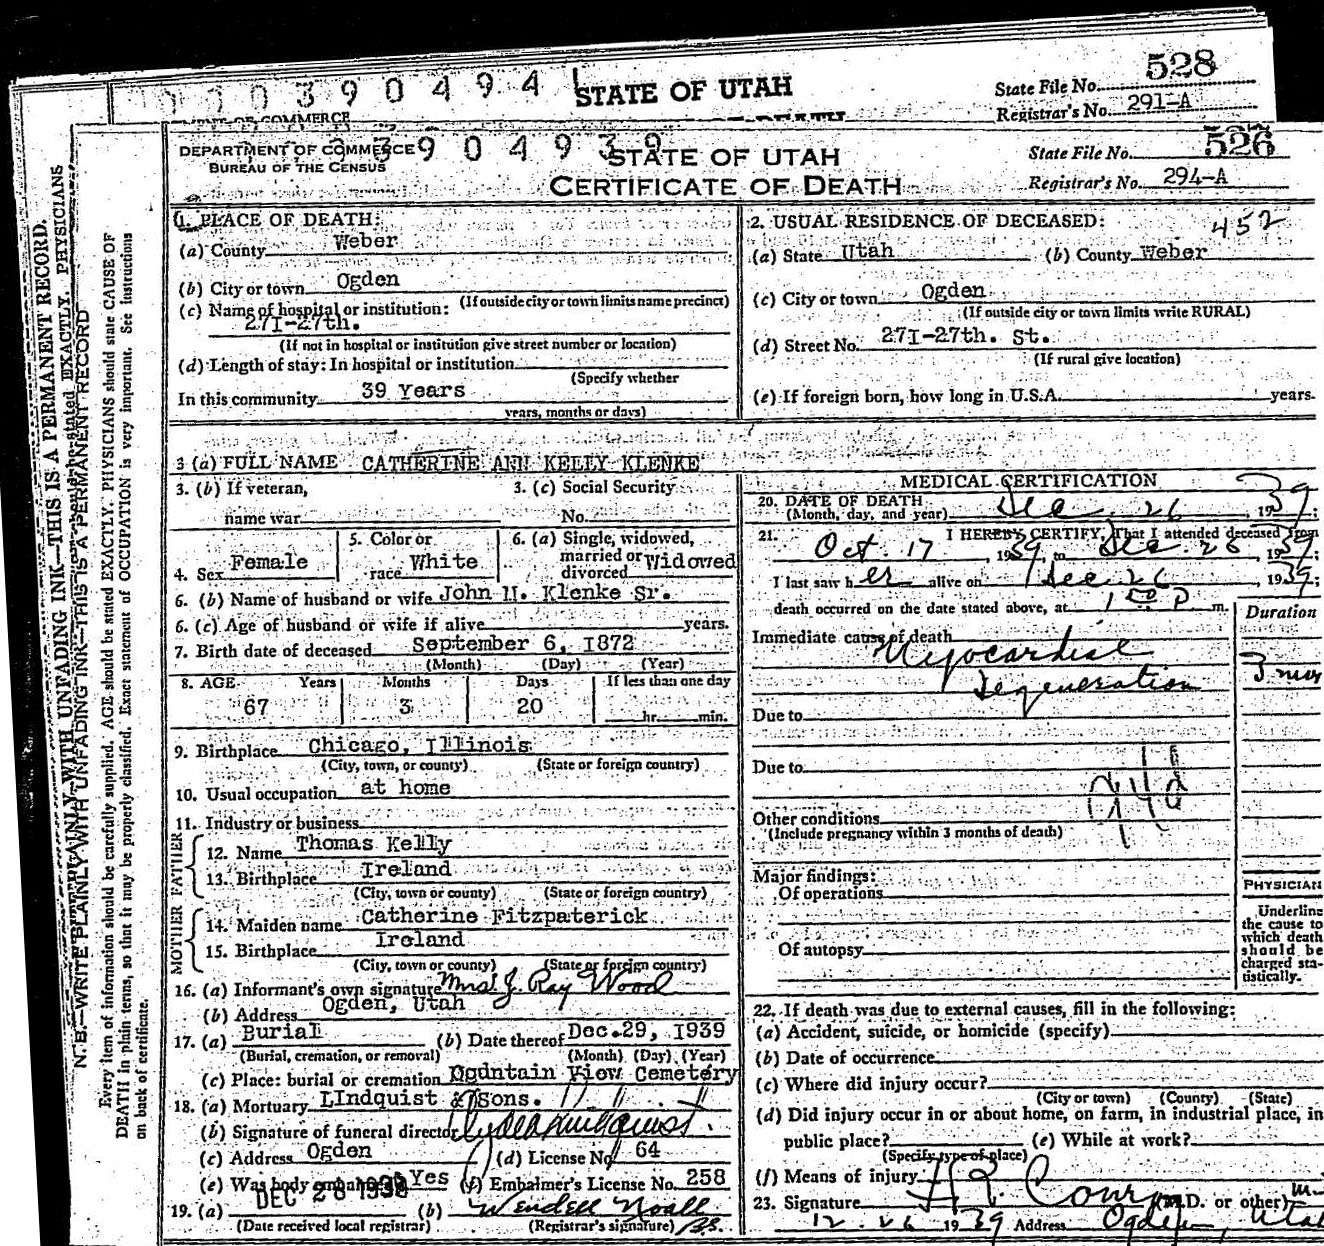 0 0 0 3 9 0 4 9 4 1 STATE OF UTAH State File No. 528
Registrar's No. 291-A
DEPARTMENT OF COMMERCE STATE OF UTAH State File No. 526
BUREAU OF THE CENSUS CERTIFICATE OF DEATH Registrar's No. 294-A
1. PLACE OF DEATH:
(a) County Weber
(b) City or town Ogden
(If outside city or town limits name precinct)
(c) Name of hospital or institution:
27I-27th.
(If not in hospital or institution give street number or location)
(d) Length of stay: In hospital or institution
(Specify whether
In this community 39 Years
years, months or days)
2. USUAL RESIDENCE OF DECEASED: 452
(a) State Utah (b) County Weber
(c) City or town Ogden
(If outside city or town limits write RURAL)
(d) Street No. 27I-27th. St.
(If rural give location)
(e) If foreign born, how long in U.S.A. years.
3 (a) FULL NAME CATHERINE ANN KELLY KLENKE
3. (b) If veteran, 3. (c) Social Security
name war No.
4. Sex Female 5. Color or race White 6. (a) Single, widowed, married or divorced Widowed
6. (b) Name of husband or wife John H. Klenke Sr.
6. (c) Age of husband or wife if alive years.
7. Birth date of deceased September 6, I872
(Month) (Day) (Year)
8. AGE Years Months Days If less than one day
67 3 20 hr. min.
9. Birthplace Chicago, Illinois
(City, town, or county) (State or foreign country)
10. Usual occupation at home
11. Industry or business
FATHER
12. Name Thomas Kelly
13. Birthplace Ireland
(City, town or county) (State or foreign country)
MOTHER
14. Maiden name Catherine Fitzpaterick
15. Birthplace Ireland
(City, town or county) (State or foreign country)
16. (a) Informant's own signature Mrs. J. Ray Wood
(b) Address Ogden, Utah
17. (a) Burial (b) Date thereof Dec.29, I939
(Burial, cremation, or removal) (Month) (Day) (Year)
(c) Place: burial or cremation View Cemetery
18. (a) Mortuary LIndquist & Sons.
(b) Signature of funeral director
(c) Address Ogden (d) License No. 64
(e) Was body embalmed Yes (f) Embalmer's License No. 258
19. (a) DEC 28 1939 (b) Wendell Noall
(Date received local registrar) (Registrar's signature)
MEDICAL CERTIFICATION
20. DATE OF DEATH Dec. 26, 1939;
(Month, day, and year)
21. I HEREBY CERTIFY, That I attended deceased from
Oct. 17, 1939 to Dec. 26, 1939;
I last saw her alive on Dec 26, 1939;
death occurred on the date stated above, at 1 00 P m.
Duration
Immediate cause of death
Myocardial
Degeneration 3 mos
Due to
Due to
Other conditions
(Include pregnancy within 3 months of death)
Major findings:
Of operations
Of autopsy
PHYSICIAN
Underline
the cause to
which death
should be
charged sta-
tistically.
22. If death was due to external causes, fill in the following:
(a) Accident, suicide, or homicide (specify)
(b) Date of occurrence
(c) Where did injury occur?
(City or town) (County) (State)
(d) Did injury occur in or about home, on farm, in industrial place, in
public place? (e) While at work?
(Specify type of place)
(f) Means of injury
23. Signature (M.D. or other)
12-26 1939 Address Ogden, Utah
N. B.—WRITE PLAINLY WITH UNFADING INK—THIS IS A PERMANENT RECORD
Every item of information should be carefully supplied. AGE should be stated EXACTLY. PHYSICIANS should state CAUSE OF
DEATH in plain terms, so that it may be properly classified. Exact statement of OCCUPATION is very important. See instructions
on back of certificate.